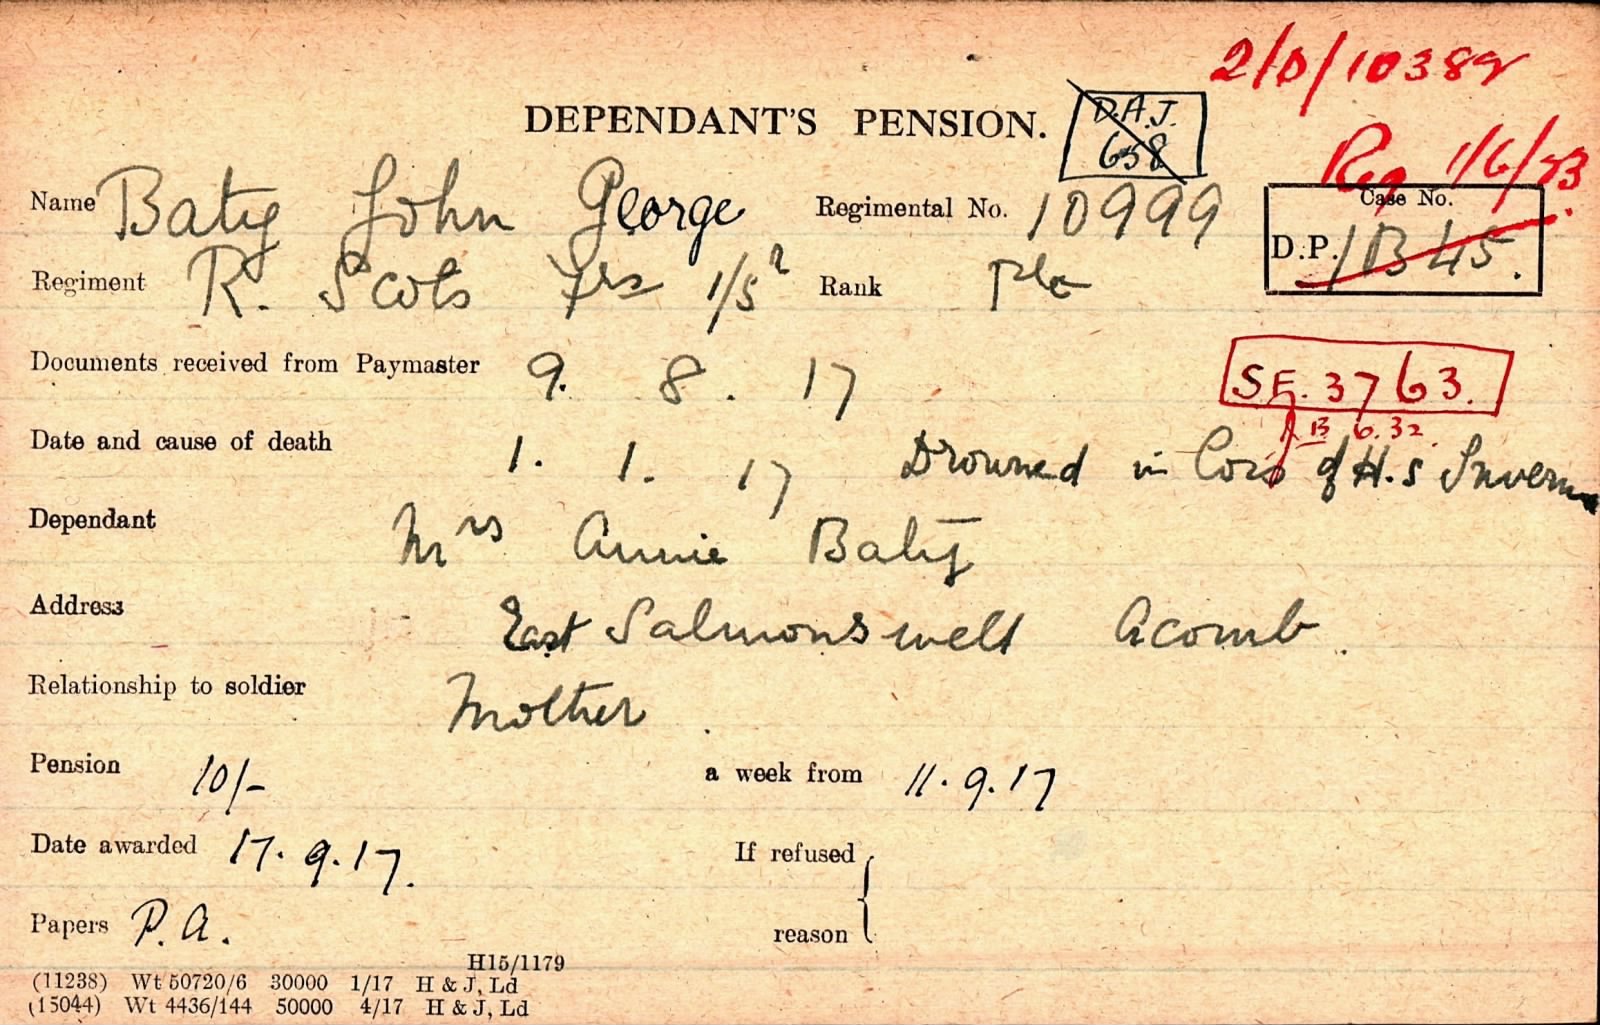 2/D/10389
DEPENDANT'S PENSION.
D.A.J.
658
Reg 1/6/43
Name Baty John George Regimental No. 10999
Case No.
D.P. 1B45.
Regiment R. Scots Frs 1/5 Rank Pte
Documents received from Paymaster 9. 8. 17
SE. 3763.
B 6.32.
Date and cause of death 1. 1. 17 Drowned in of H.S
Dependant Mrs Annie Baty
Address East Salmonswell Acomb.
Relationship to soldier Mother.
Pension 10/- a week from 11.9.17
Date awarded 17.9.17. If refused
Papers P.A. reason
H15/1179
(11238) Wt 50720/6 30000 1/17 H & J, Ld
(15044) Wt 4436/144 50000 4/17 H & J, Ld